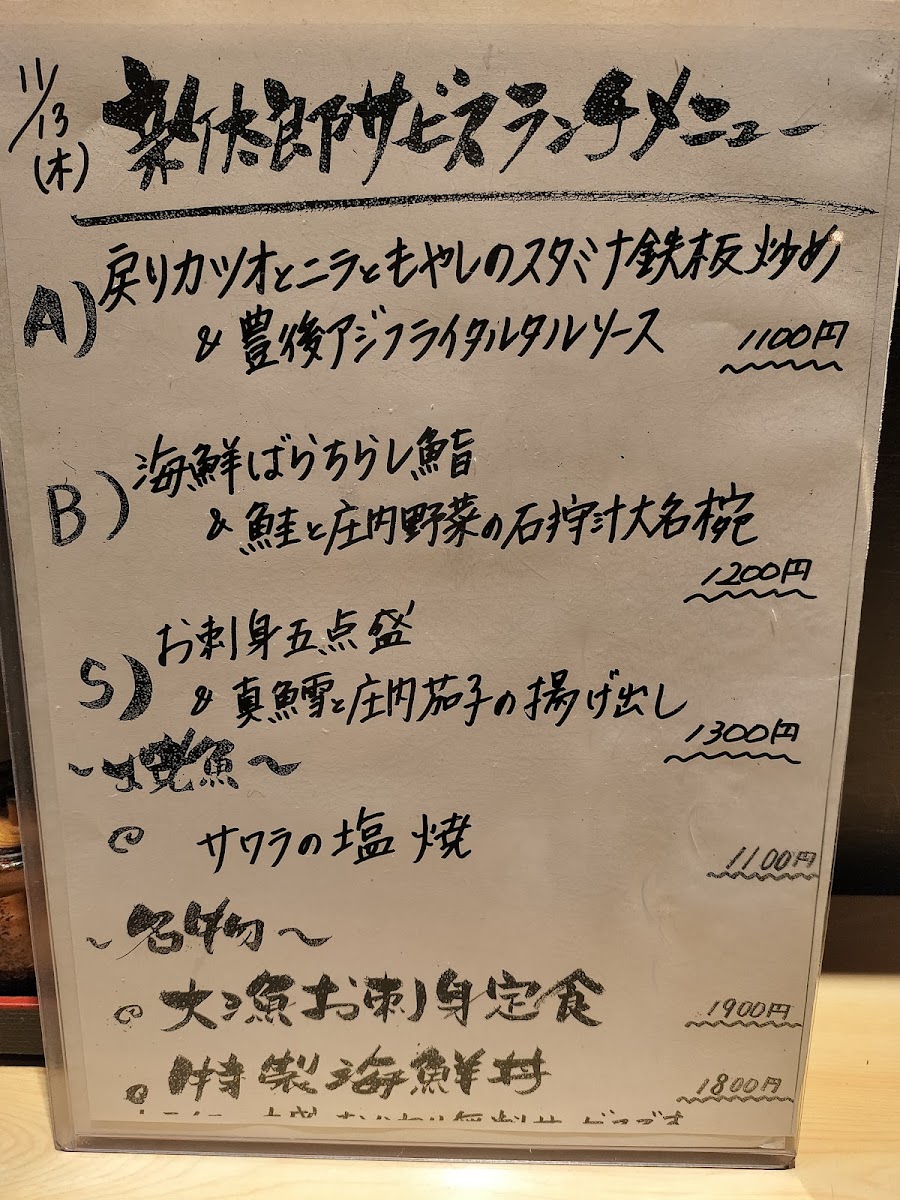 11/13
(木)
新休郎サービスランチメニュー
A) 戻りカツオとニラともやしのスタミナ鉄板炒め
& 豊後アジフライタルタルソース 1100円
B) 海鮮ばらちらし鮨
& 鮭と庄内野菜の石狩汁大名椀
1200円
S) お刺身五点盛
& 真鱈と庄内茄子の揚げ出し
1300円
〜焼魚〜
サワラの塩焼 1100円
〜名物〜
大漁お刺身定食 1900円
特製海鮮丼 1800円